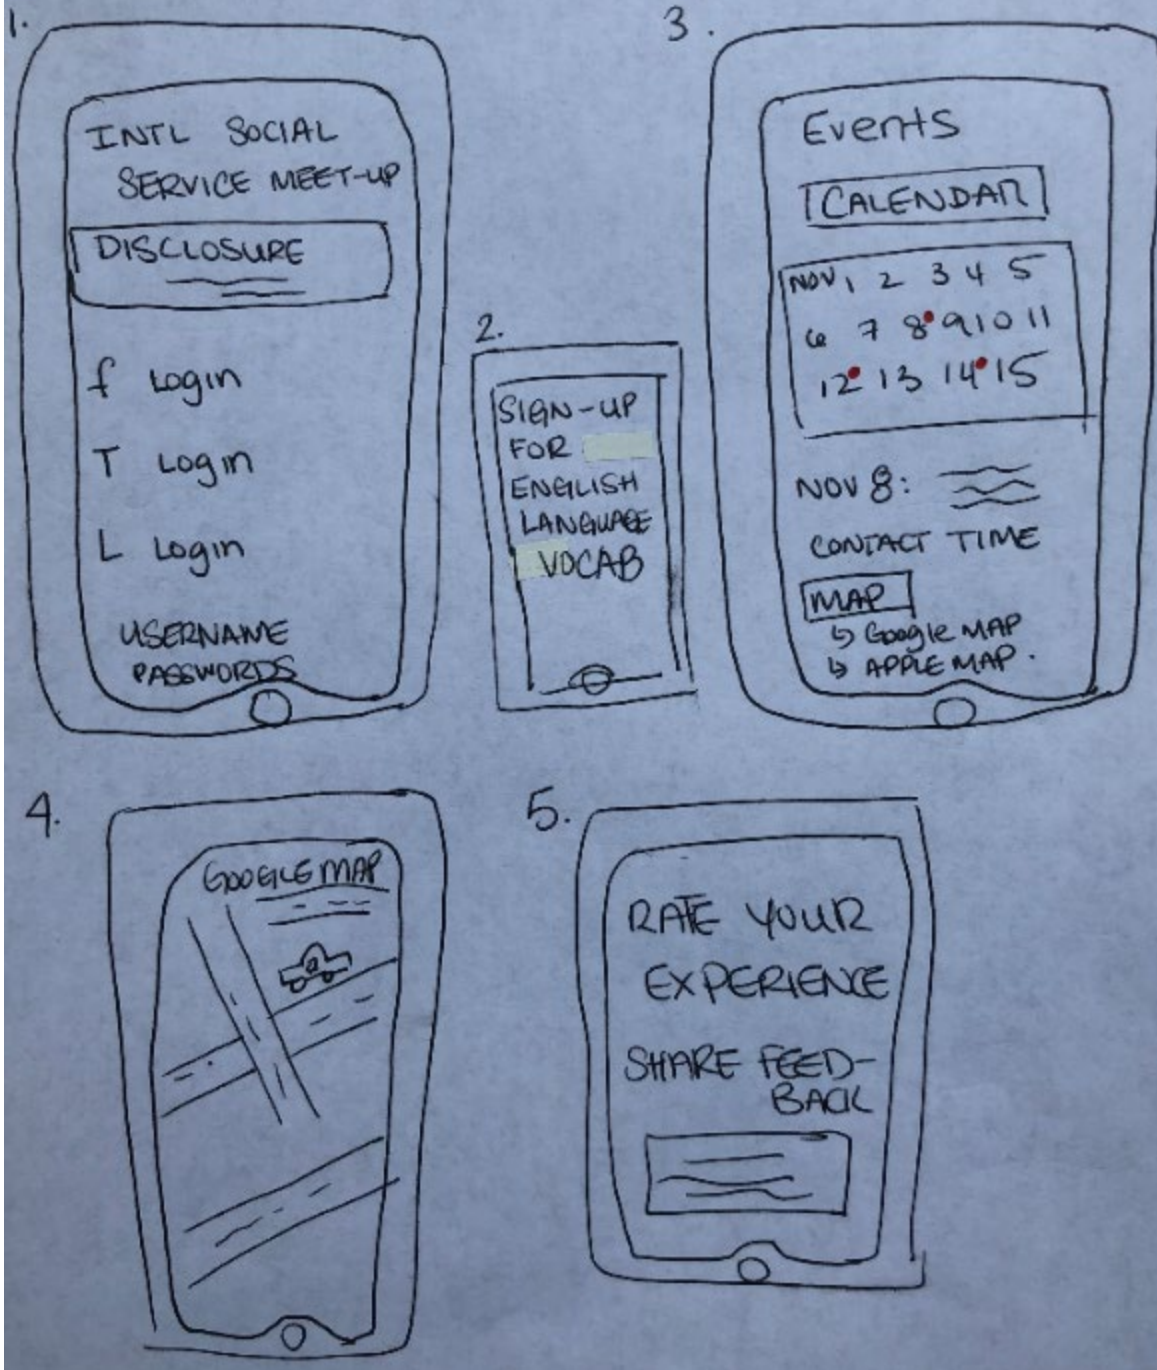 1.
INTL SOCIAL
SERVICE MEET-UP
DISCLOSURE
f Login
T Login
L Login
USERNAME
PASSWORDS
2.
SIGN-UP
FOR
ENGLISH
LANGUAGE
VOCAB
3.
Events
CALENDAR
NOV 1 2 3 4 5
6 7 8 9 10 11
12 13 14 15
NOV 8:
CONTACT TIME
MAP
↳ Google MAP
↳ APPLE MAP.
4.
GOOGLE MAP
5.
RATE YOUR
EXPERIENCE
SHARE FEED-
BACK